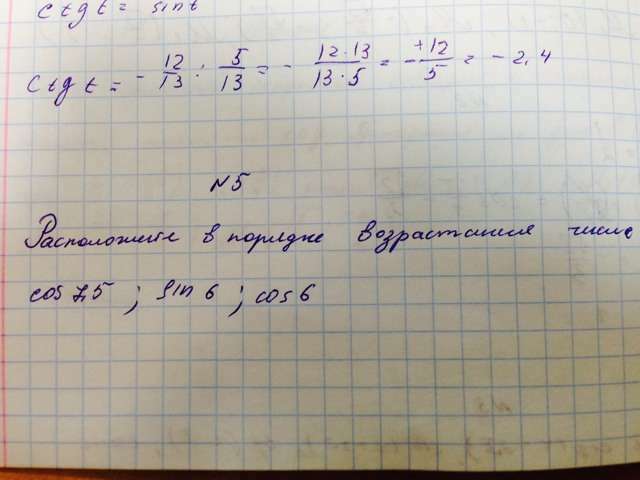 ctg t = sin t
ctg t = - 12/13 : 5/13 = - 12·13/13·5 = - +12/5 = - 2,4
№5
Расположите в порядке возрастания числа
cos 7,5 ; sin 6 ; cos 6